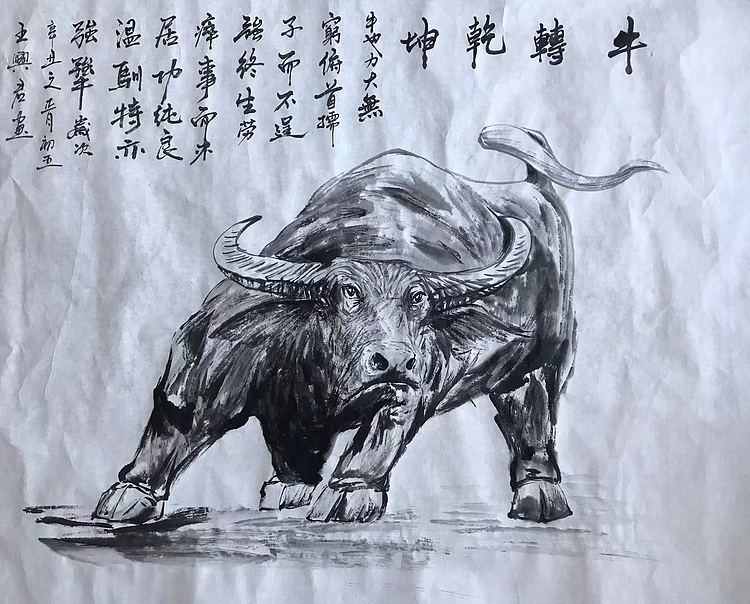 牛轉乾坤
牛也力大無
窮俯首孺
子而不逞
強終生勞
瘁事而不
居功純良
溫馴特亦
強犟歲次
辛丑之正月初五
王興君畫